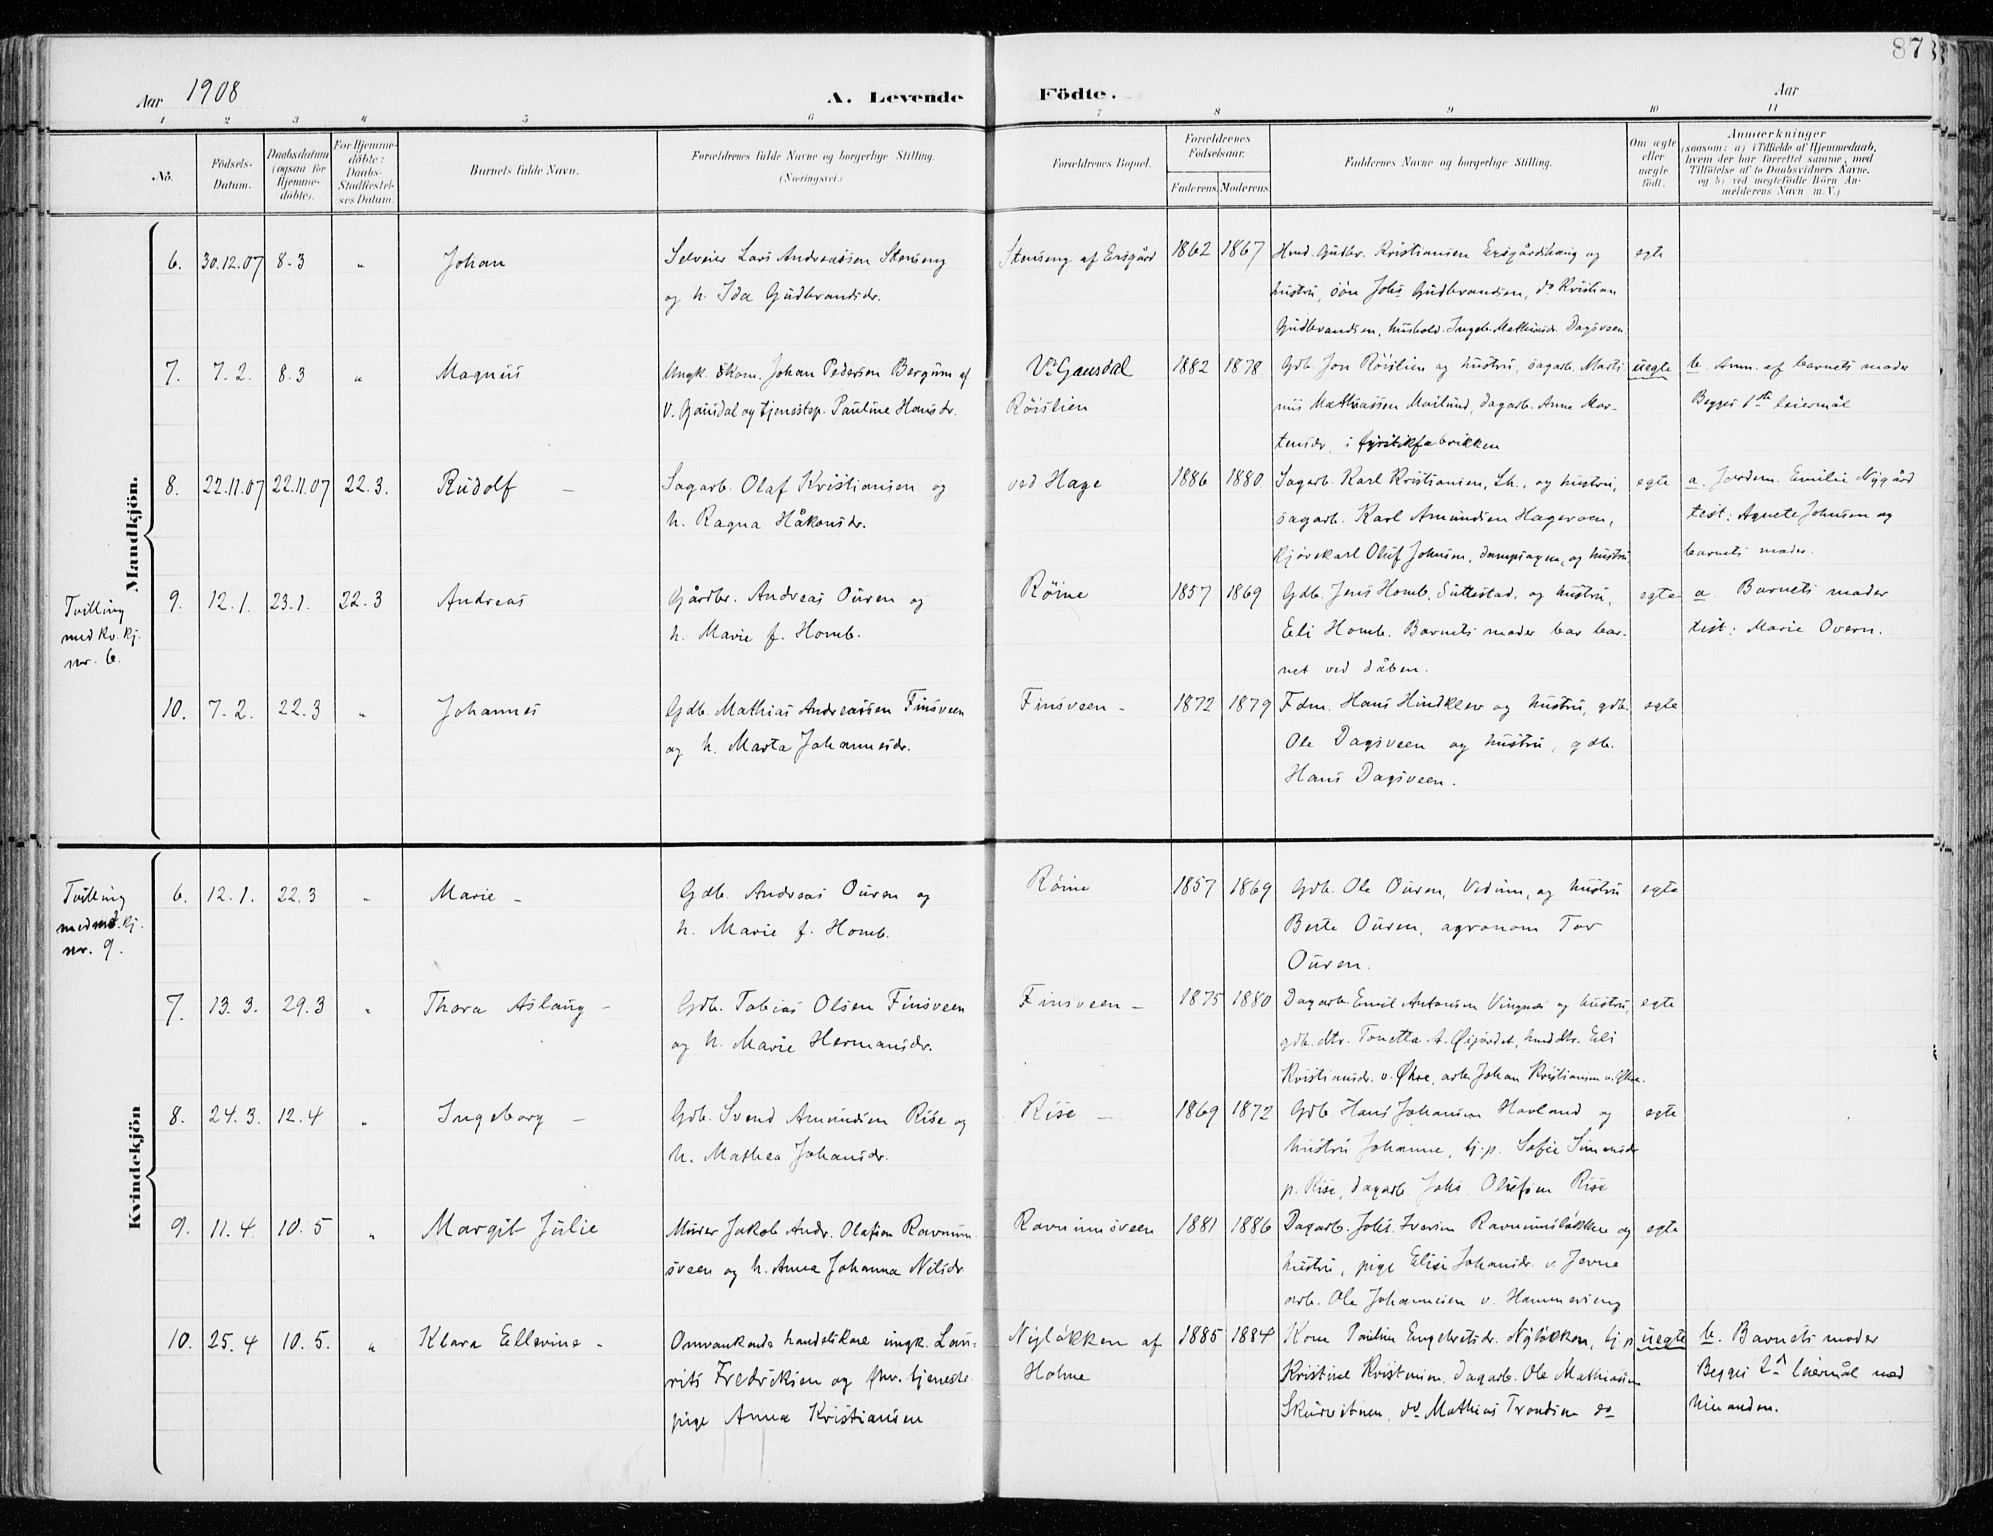 87
Aar 1908
A. Levende Födte.
Aar
1 2 3 4 5 6 7 8 9 10 11
Nö.
Födsels-Datum.
Daabsdatum (ogsaa for Hjemmedöbte).
For Hjemmedöbte: Daabs-Stadfæstelses Datum.
Barnets fulde Navn.
Forældrenes fulde Navne og borgerlige Stilling. (Næringsvei.)
Forældrenes Bopæl.
Forældrenes Födselsaar.
Faderens. Moderens.
Faddernes Navne og borgerlige Stilling.
Om ægte eller uægte födt.
Anmærkninger
(saasom: a) i Tilfælde af Hjemmedaab, hvem der har forrettet samme, med Tilföielse af to Daabsvidners Navne, og b) ved uægtefödte Börn Anmelderens Navn m. V.)
Mandkjön.
6. 30.12.07 8.3 " Johan
Selveier Lars Andreassen Stenseng
og h. Ida Gudbrandsdr.
Stenseng af Ersgård 1862 1867
Hmd. Gudbr. Kristiansen Ersgårdshaug og
hustru, sön Johs Gudbrandsen, do Kristian
Gudbrandsen, hushold. Ingeb. Mathiasdr. Dagsveen.
egte
7. 7.2. 8.3 " Magnus
Ungk. Skom. Johan Pedersen Bergum af
V. Gausdal og tjenestep. Pauline Hansdr.
V. Gausdal
Röislien
1882 1878
Gdb. Jon Röislien og hustru, sagarb. Marti
nus Mathiassen Moilund, dagarb. Anne Mor-
tensdr. i fyrstikfabrikken
uegte
b. Anm. af barnets moder
Begges 1ste leiermål
8. 22.11.07 22.11.07 22.3. Rudolf –
Sagarb. Olaf Kristiansen og
h. Ragna Håkonsdr.
ved Hage 1886 1880
Sagarb. Karl Kristiansen, Lh., og hustru,
sagarb. Karl Amundsen Hageroen,
kjörekarl Oluf Johnsen, dampsagen, og hustru.
egte
a. Jordm. Emilie Nygård
test: Agnete Johnsen og
barnets moder.
Tvilling
med kv.kj.
nr. 6.
9. 12.1. 23.1. 22.3 Andreas
Gårdbr. Andreas Ouren og
h. Marie f. Homb.
Röine 1857 1869
Gdb. Jens Homb, Suttestad, og hustru,
Eli Homb. Barnets moder bar bar-
net ved dåben.
egte
a. Barnets moder
test: Marie Overn.
10. 7.2. 22.3 " Johannes
Gdb. Mathias Andreassen Finsveen
og h. Marta Johannesdr.
Finsveen – 1872 1879
Fdm. Hans Hindklev og hustru, gdb.
Ole Dagsveen og hustru, gdb.
Hans Dagsveen.
egte
Kvindekjön
Tvilling
med md.kj.
nr. 9.
6. 12.1. 22.3 " Marie –
Gdb. Andreas Ouren og
h. Marie f. Homb.
Röine 1857 1869
Gdb. Ole Ouren, Vedum, og hustru
Berte Ouren, agronom Tor
Ouren.
egte
7. 13.3. 29.3 " Thora Aslaug –
Gdb. Tobias Olsen Finsveen
og h. Marie Hermansdr.
Finsveen – 1875 1880
Dagarb. Emil Antonsen Vingnes og hustru,
gdb.dtr. Tonetta A. Øigårdet, hmd.dtr. Eli
Kristiansdr. v. Øhre, arb. Johan Kristiansen v. Øhre.
egte
8. 24.3. 12.4 " Ingeborg –
Gdb. Svend Amundsen Rise og
h. Mathea Johansdr.
Rise – 1869 1872
Gdb Hans Johansen Hovland og
hustru Johanne, tj.p. Sofie Simensdr
p. Rise, dagarb. Johs. Olufsen Rise
egte
9. 11.4. 10.5 " Margit Julie
Murer Jakob Andr. Olafsen Ravnum-
sveen og h. Anna Johanna Nilsdr.
Ravnumsveen 1881 1886
Dagarb. Johs. Iversen Ravnumslökken og
hustru, pige Elise Johansdr. v. Jevne
arb. Ole Johannesen v. Hammereng
egte
10. 25.4 10.5. " Klara Ellevine –
Omvankende handelskar ungk. Lau-
rits Fredriksen og fhv. tjeneste-
pige Anna Kristiansen
Nylökken af
Holme
1885 1884
Kone Pauline Engebretsdr. Nylökken, tj.p.
Kristine Kristensen, dagarb. Ole Mathiassen
Skurvetuen, do Mathias Trondsen do
uegte
b. Barnets moder
Begges 2d leiermål med
hinanden.